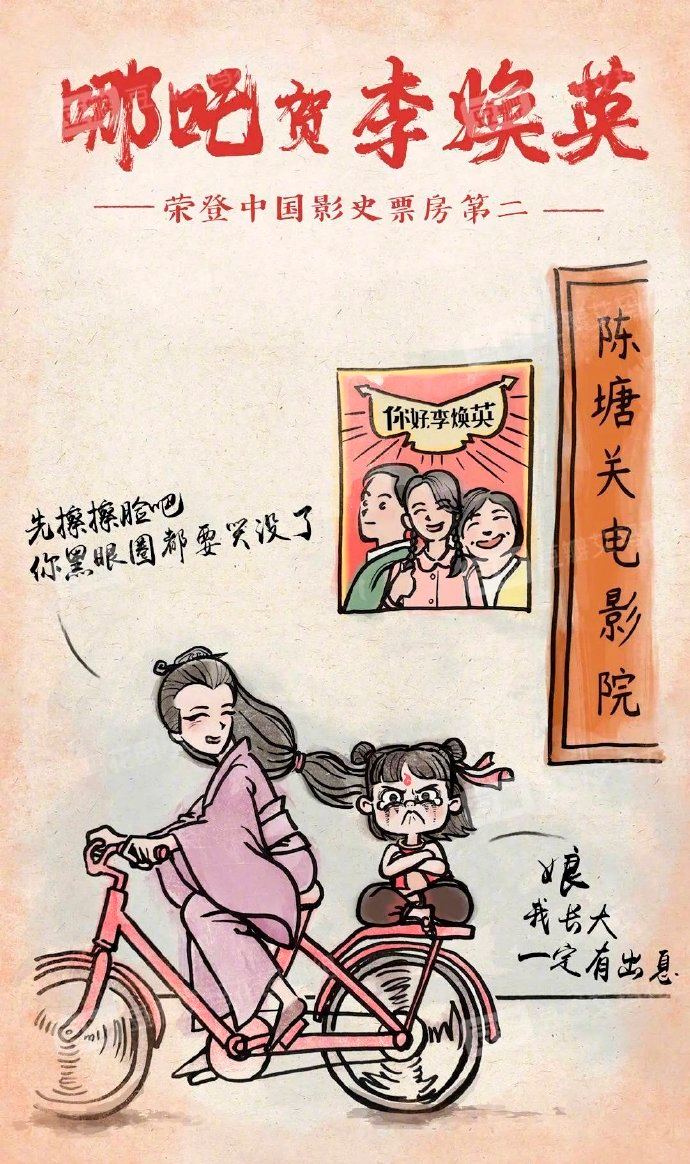 哪吒贺李焕英
荣登中国影史票房第二
陈塘关电影院
你好,李焕英
先擦擦脸吧
你黑眼圈都要哭没了
娘
我长大
一定有出息